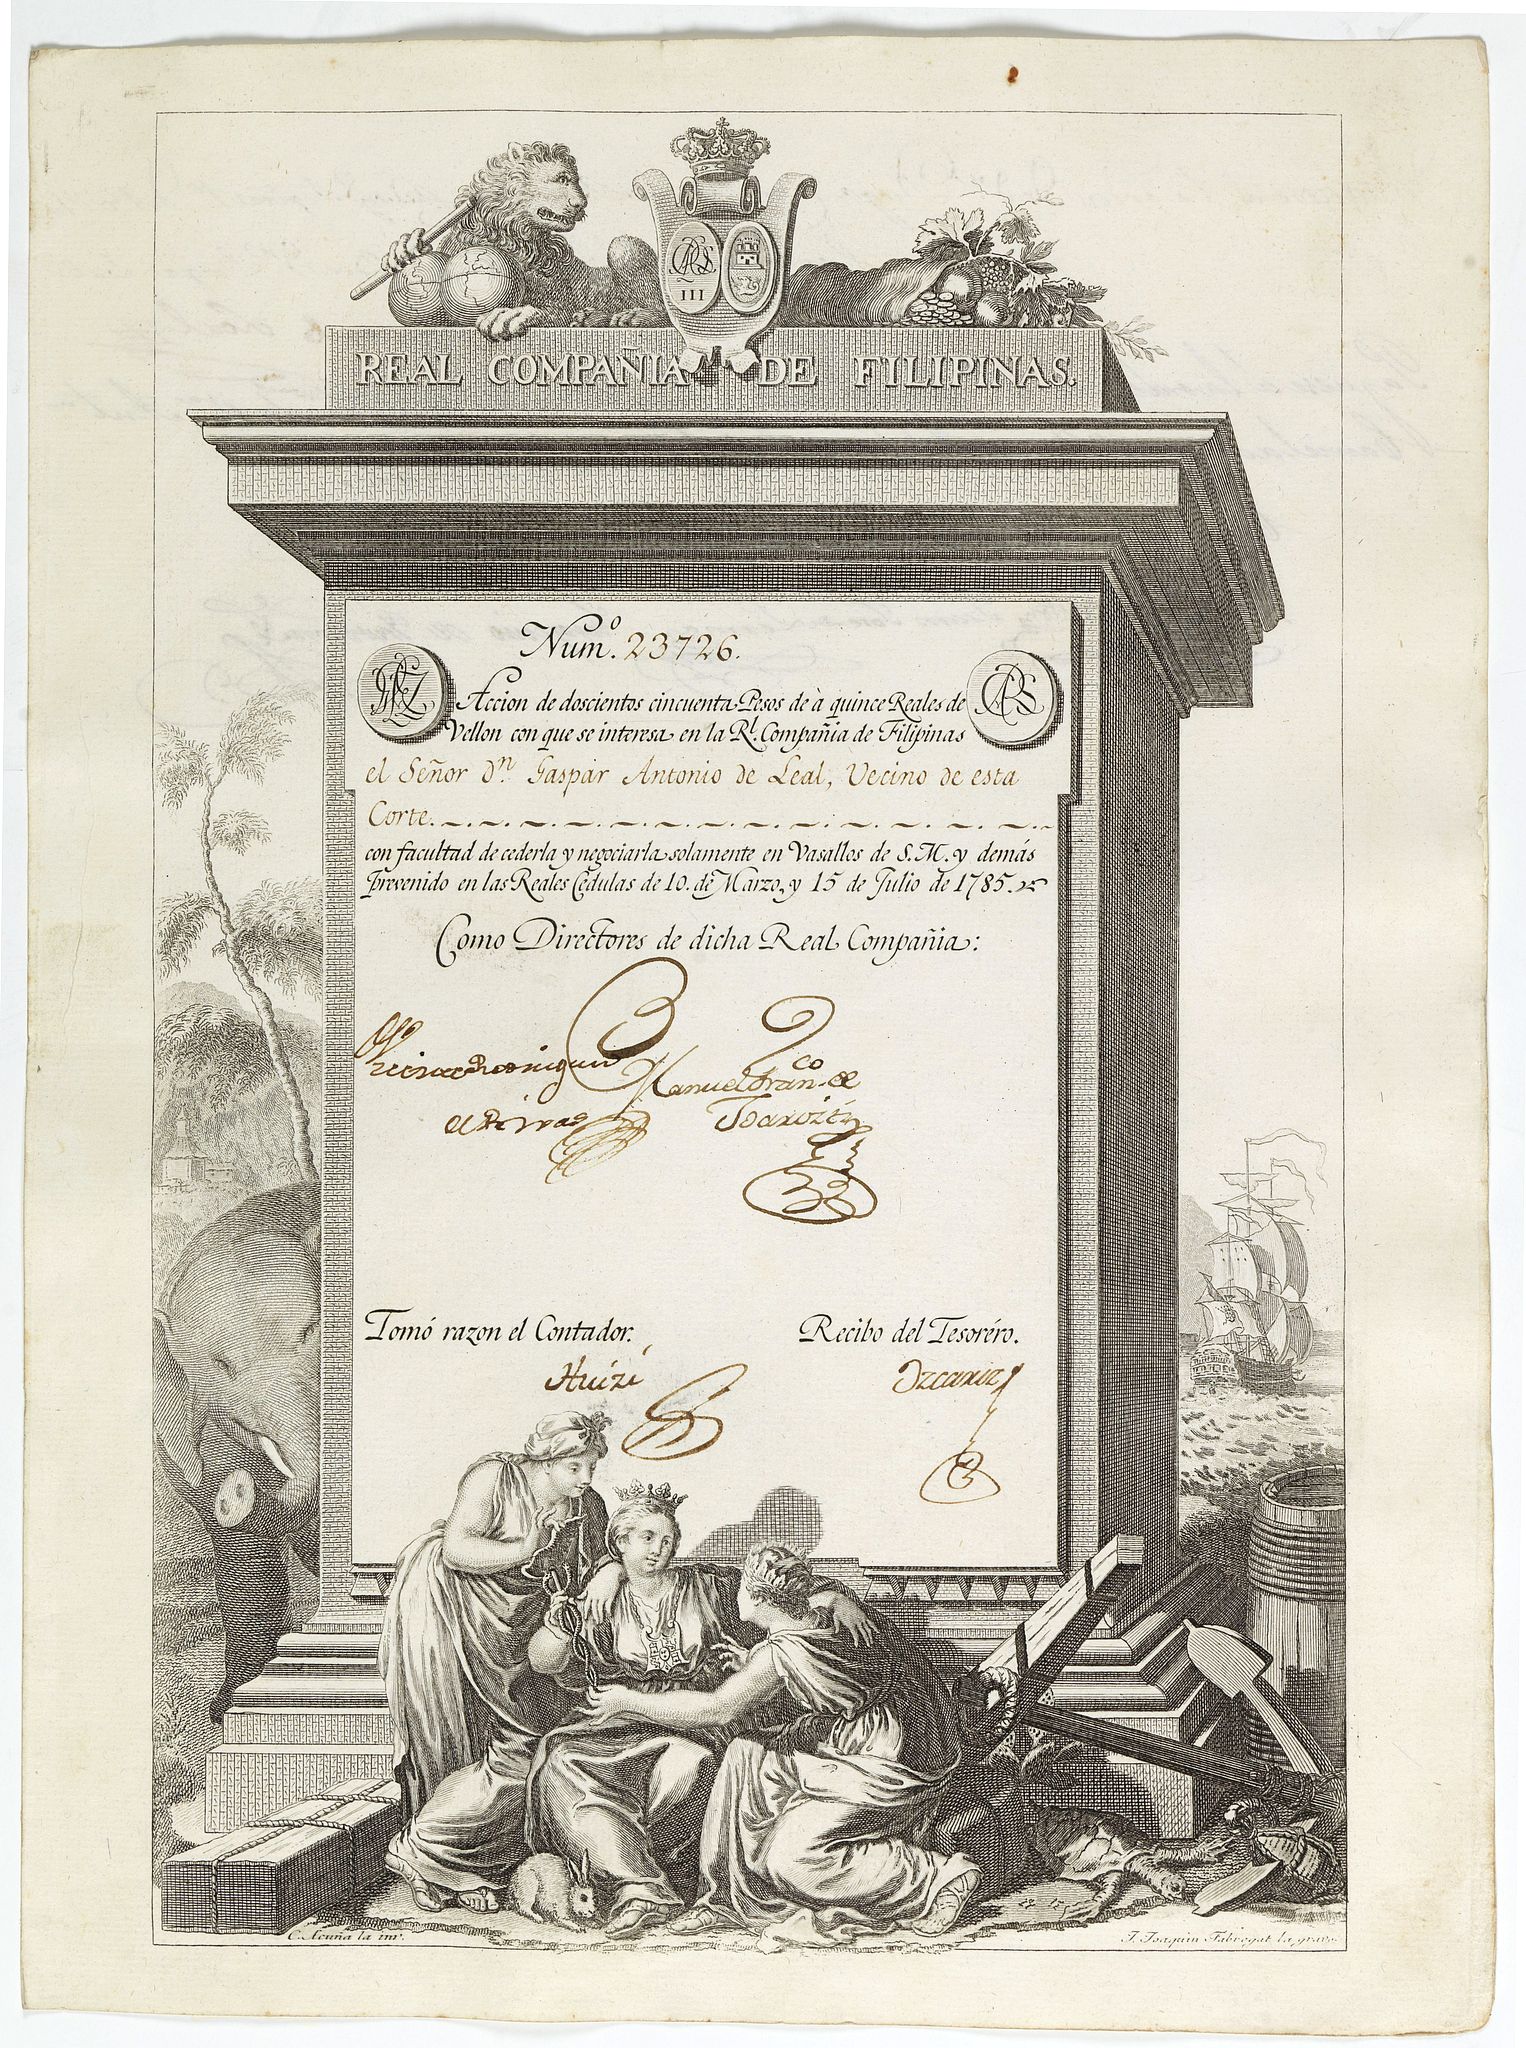 III
REAL COMPAÑIA DE FILIPINAS.
Num.º 23726.
Accion de doscientos cincuenta Pesos de à quince Reales de
Vellon con que se interesa en la Rl. Compañia de Filipinas
el Señor Dn. Gaspar Antonio de Leal, Vecino de esta
Corte.
con facultad de cederla y negociarla solamente en Vasallos de S.M. y demás
prevenido en las Reales Cedulas de 10. de Marzo, y 15 de Julio de 1785.
Como Directores de dicha Real Compañia:
Manuel Franco. de
Tomó razon el Contador.
Recibo del Tesoréro.
C. Acuña la inv.
J. Joaquin Fabregat la gravó.